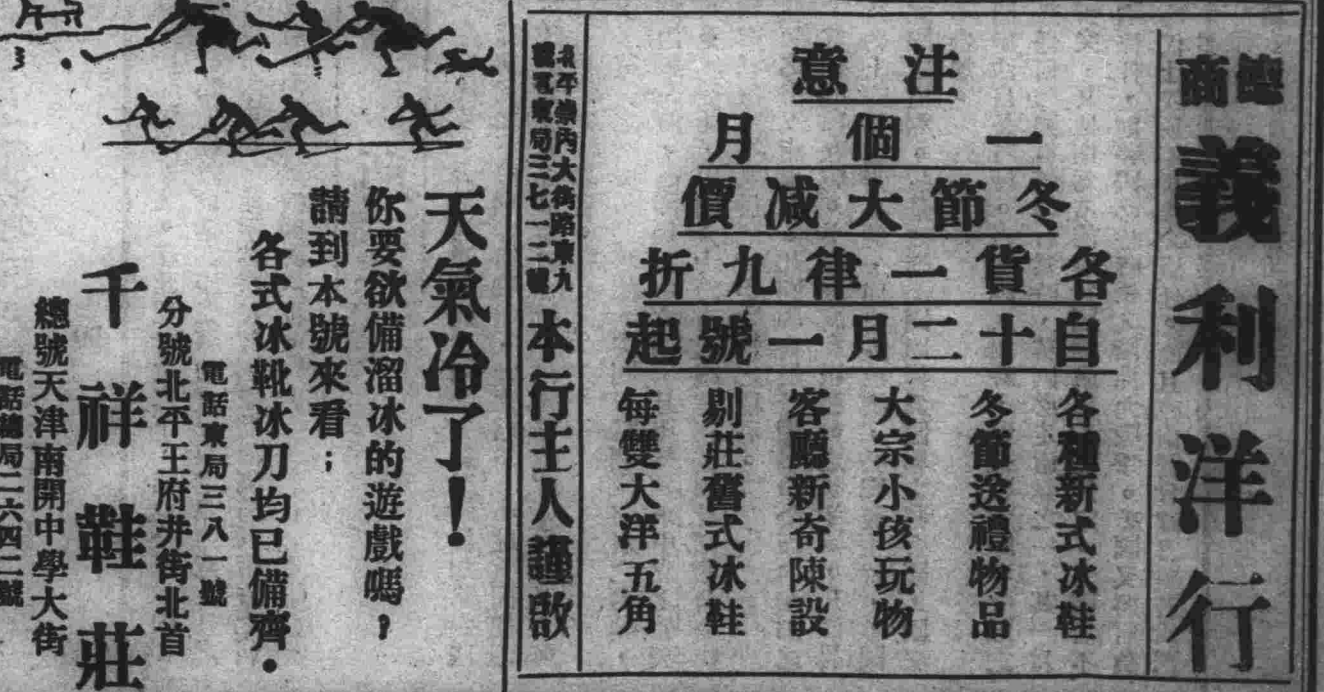 德商
義利洋行
注意
一個月
冬節大减價
各貨一律九折
自十二月一號起
各種新式冰鞋
冬節送禮物品
大宗小孩玩物
客廳新奇陳設
剔莊舊式冰鞋
每雙大洋五角
北平崇內大街路東九
號電東局三七一二號
本行主人謹啟
天氣冷了！
你要欲備溜冰的遊戲嗎，
請到本號來看；
各式冰靴冰刀均已備齊．
電話東局三八一號
分號北平王府井街北首
千祥鞋莊
總號天津南開中學大街
電話總局二六四二號